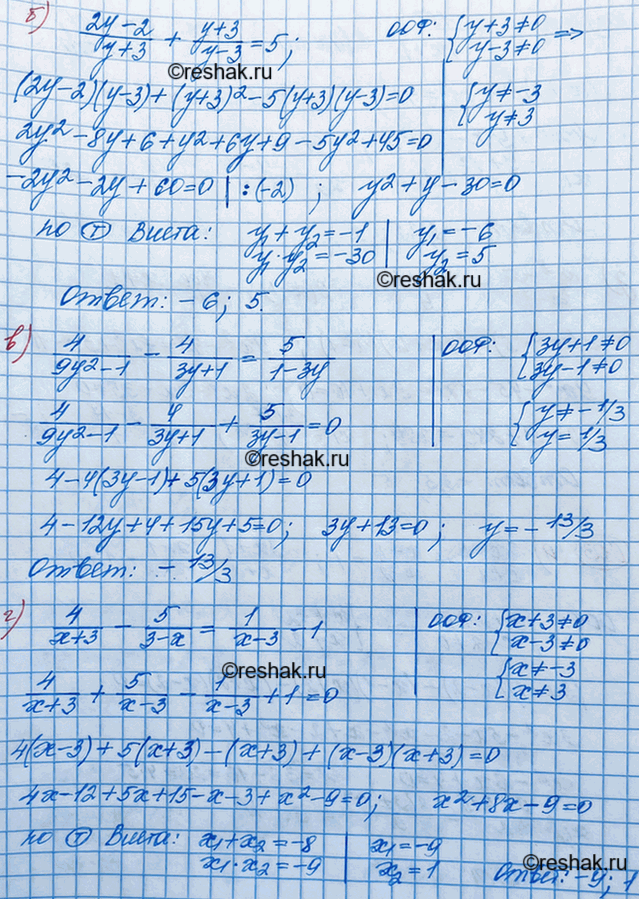 б) (2y-2)/(y+3) + (y+3)/(y-3) = 5; ООФ: { y+3≠0 =>
y-3≠0
©reshak.ru
(2y-2)(y-3)+(y+3)²-5(y+3)(y-3)=0 { y≠-3
y≠3
2y²-8y+6+y²+6y+9-5y²+45=0
-2y²-2y+60=0 | :(-2) ; y²+y-30=0
по Т Виета: y₁+y₂=-1 | y₁=-6
y₁·y₂=-30 | y₂=5
©reshak.ru
Ответ: -6; 5.
в) 4/(9y²-1) - 4/(3y+1) = 5/(1-3y) ООФ: { 3y+1≠0
3y-1≠0
4/(9y²-1) - 4/(3y+1) + 5/(3y-1) = 0 { y≠-1/3
y=1/3
©reshak.ru
4-4(3y-1)+5(3y+1)=0
4-12y+4+15y+5=0; 3y+13=0; y=-13/3
Ответ: -13/3
г) 4/(x+3) - 5/(3-x) = 1/(x-3) - 1 ООФ: { x+3≠0
x-3≠0
©reshak.ru
4/(x+3) + 5/(x-3) - 1/(x-3) + 1 = 0 { x≠-3
x≠3
4(x-3)+5(x+3)-(x+3)+(x-3)(x+3)=0
4x-12+5x+15-x-3+x²-9=0; x²+8x-9=0
по Т Виета: x₁+x₂=-8 | x₁=-9
x₁·x₂=-9 | x₂=1 Ответ: -9; 1
©reshak.ru